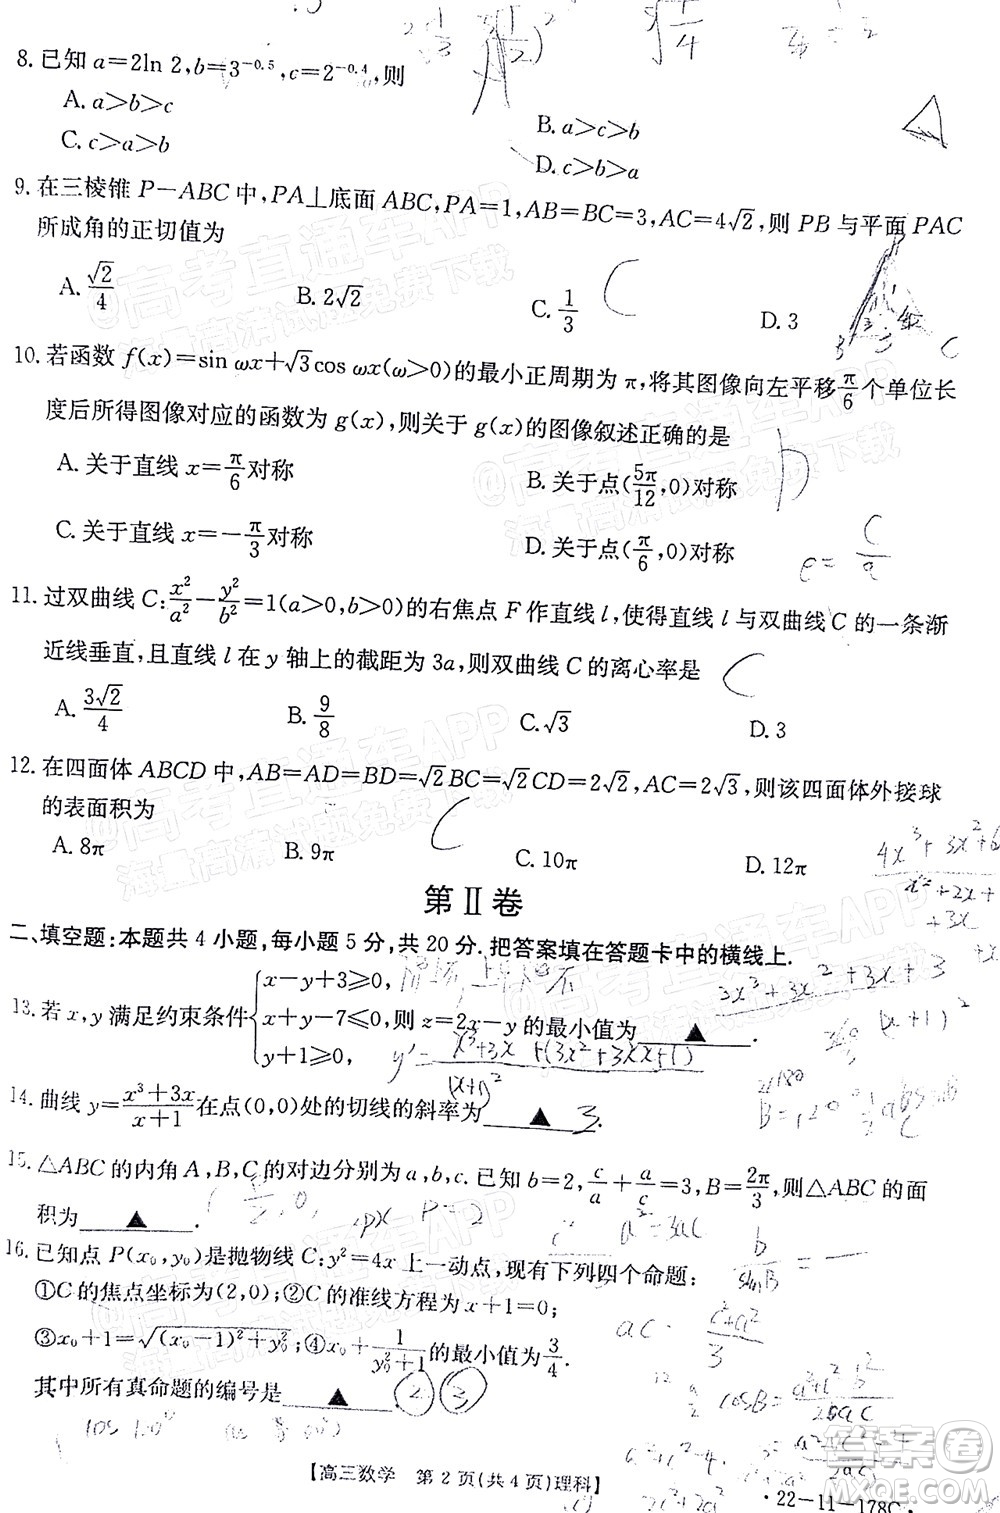 8.已知 a=2ln 2,b=3^{-0.5},c=2^{-0.4},则
A. a>b>c
B. a>c>b
C. c>a>b
D. c>b>a
9.在三棱锥 P-ABC 中,PA⊥底面 ABC,PA=1,AB=BC=3,AC=4√2,则 PB 与平面 PAC
所成角的正切值为
A. √2/4
B. 2√2
C. 1/3
D. 3
10.若函数 f(x)=sin ωx+√3cos ωx(ω>0)的最小正周期为 π,将其图像向左平移 π/6 个单位长
度后所得图像对应的函数为 g(x),则关于 g(x)的图像叙述正确的是
A. 关于直线 x=π/6 对称
B. 关于点(5π/12,0)对称
C. 关于直线 x=-π/3 对称
D. 关于点(π/6,0)对称
e = c/a
11.过双曲线 C:x²/a²-y²/b²=1(a>0,b>0)的右焦点 F 作直线 l,使得直线 l 与双曲线 C 的一条渐
近线垂直,且直线 l 在 y 轴上的截距为 3a,则双曲线 C 的离心率是
C
A. 3√2/4
B. 9/8
C. √3
D. 3
12.在四面体 ABCD 中,AB=AD=BD=√2BC=√2CD=2√2,AC=2√3,则该四面体外接球
的表面积为
C
A. 8π
B. 9π
C. 10π
D. 12π
第Ⅱ卷
二、填空题:本题共 4 小题,每小题 5 分,共 20 分.把答案填在答题卡中的横线上.
13.若 x,y 满足约束条件{x-y+3≥0, x+y-7≤0, y+1≥0,则 z=2x-y 的最小值为 ▲ .
14.曲线 y=(x³+3x)/(x+1)在点(0,0)处的切线的斜率为 ▲ . 3
15.△ABC 的内角 A,B,C 的对边分别为 a,b,c.已知 b=2,c/a+a/c=3,B=2π/3,则△ABC 的面
积为 ▲ .
16.已知点 P(x₀,y₀)是抛物线 C:y²=4x 上一点,现有下列四个命题:
①C 的焦点坐标为(2,0);②C 的准线方程为 x+1=0;
③x₀+1=√((x₀-1)²+y₀²);④x₀+1/(y₀²+1)的最小值为 3/4.
其中所有真命题的编号是 ▲ . ② ③
【高三数学 第 2 页(共 4 页)理科】
·22-11-178C·
@高考直通车APP
海量高清试题免费下载
答案圈
MXQE.COM